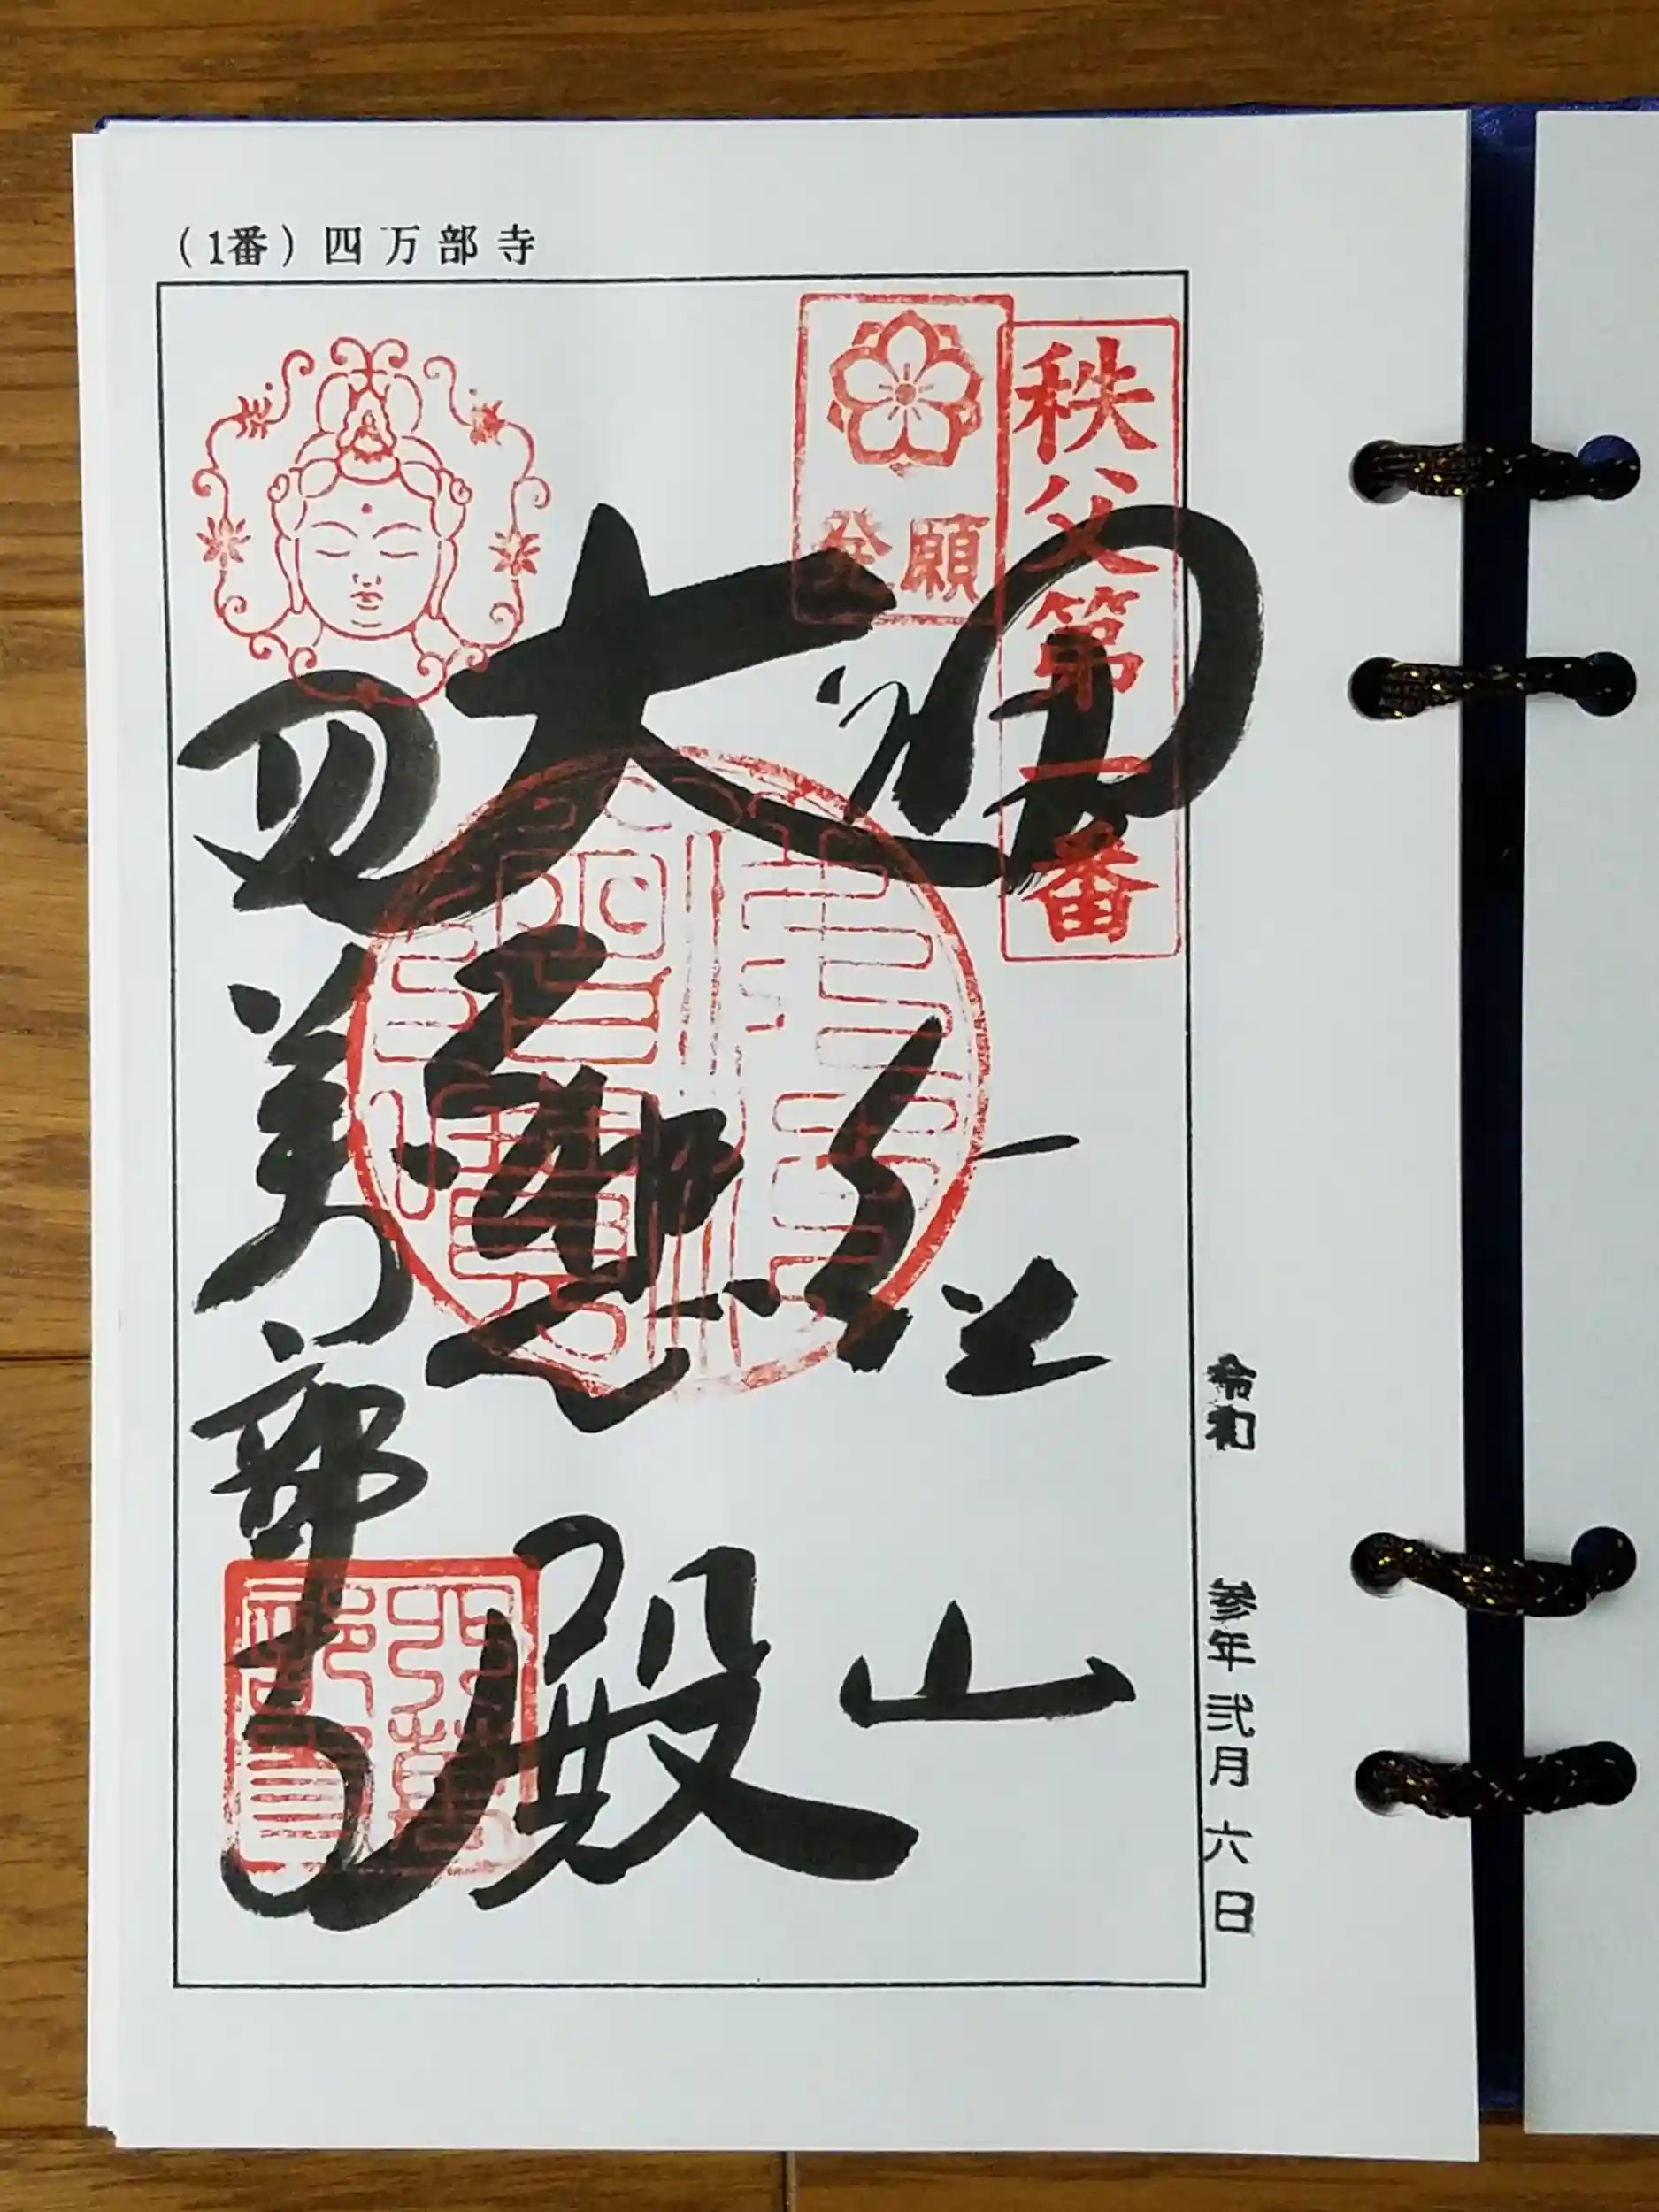 (1番) 四万部寺
秩父第一番
発願
誦経山
大 殿
四萬部寺
令和 参年弐月六日